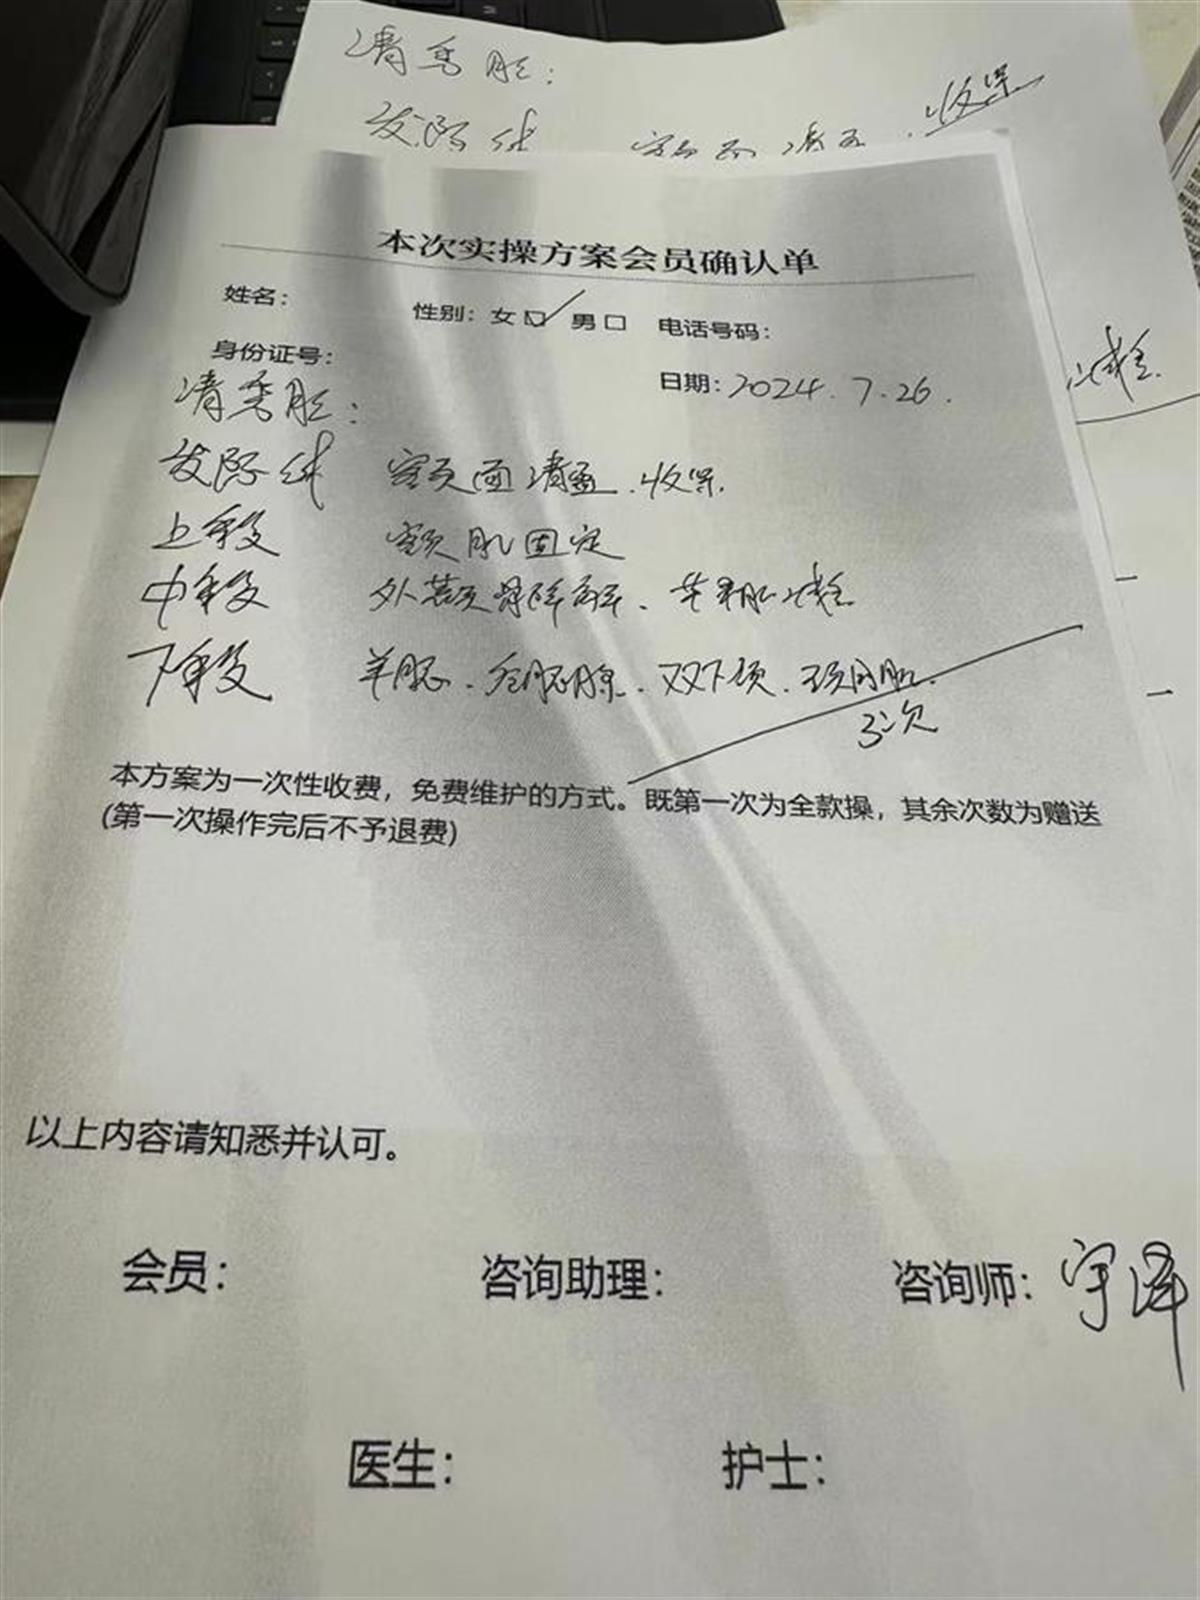 清秀脸：
发际线 收紧
本次实操方案会员确认单
姓名： 性别：女☑ 男□ 电话号码：
身份证号： 日期：2024.7.26.
清秀脸：
发际线 容页面清盈.收紧.
上手段 额肌固定
中手段 外颧骨降解.苹果肌
下手段 双下颏.颈阔肌.
3次
本方案为一次性收费，免费维护的方式。既第一次为全款操，其余次数为赠送
(第一次操作完后不予退费)
以上内容请知悉并认可。
会员： 咨询助理： 咨询师：宇泽
医生： 护士：